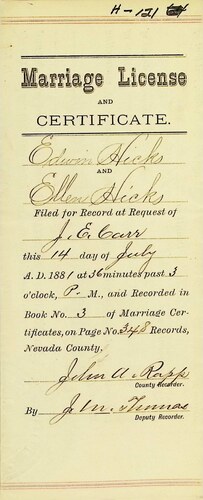 H-121
Marriage License
AND
CERTIFICATE.
Edwin Hicks
AND
Ellen Hicks
Filed for Record at Request of
J. E. Carr
this 14 day of July
A. D. 1881 at 36 minutes past 3
o'clock, P. M., and Recorded in
Book No. 3 of Marriage Cer-
tificates, on Page No. 348 Records,
Nevada County,
John A. Rapp
County Recorder.
By J. M. Thomas
Deputy Recorder.